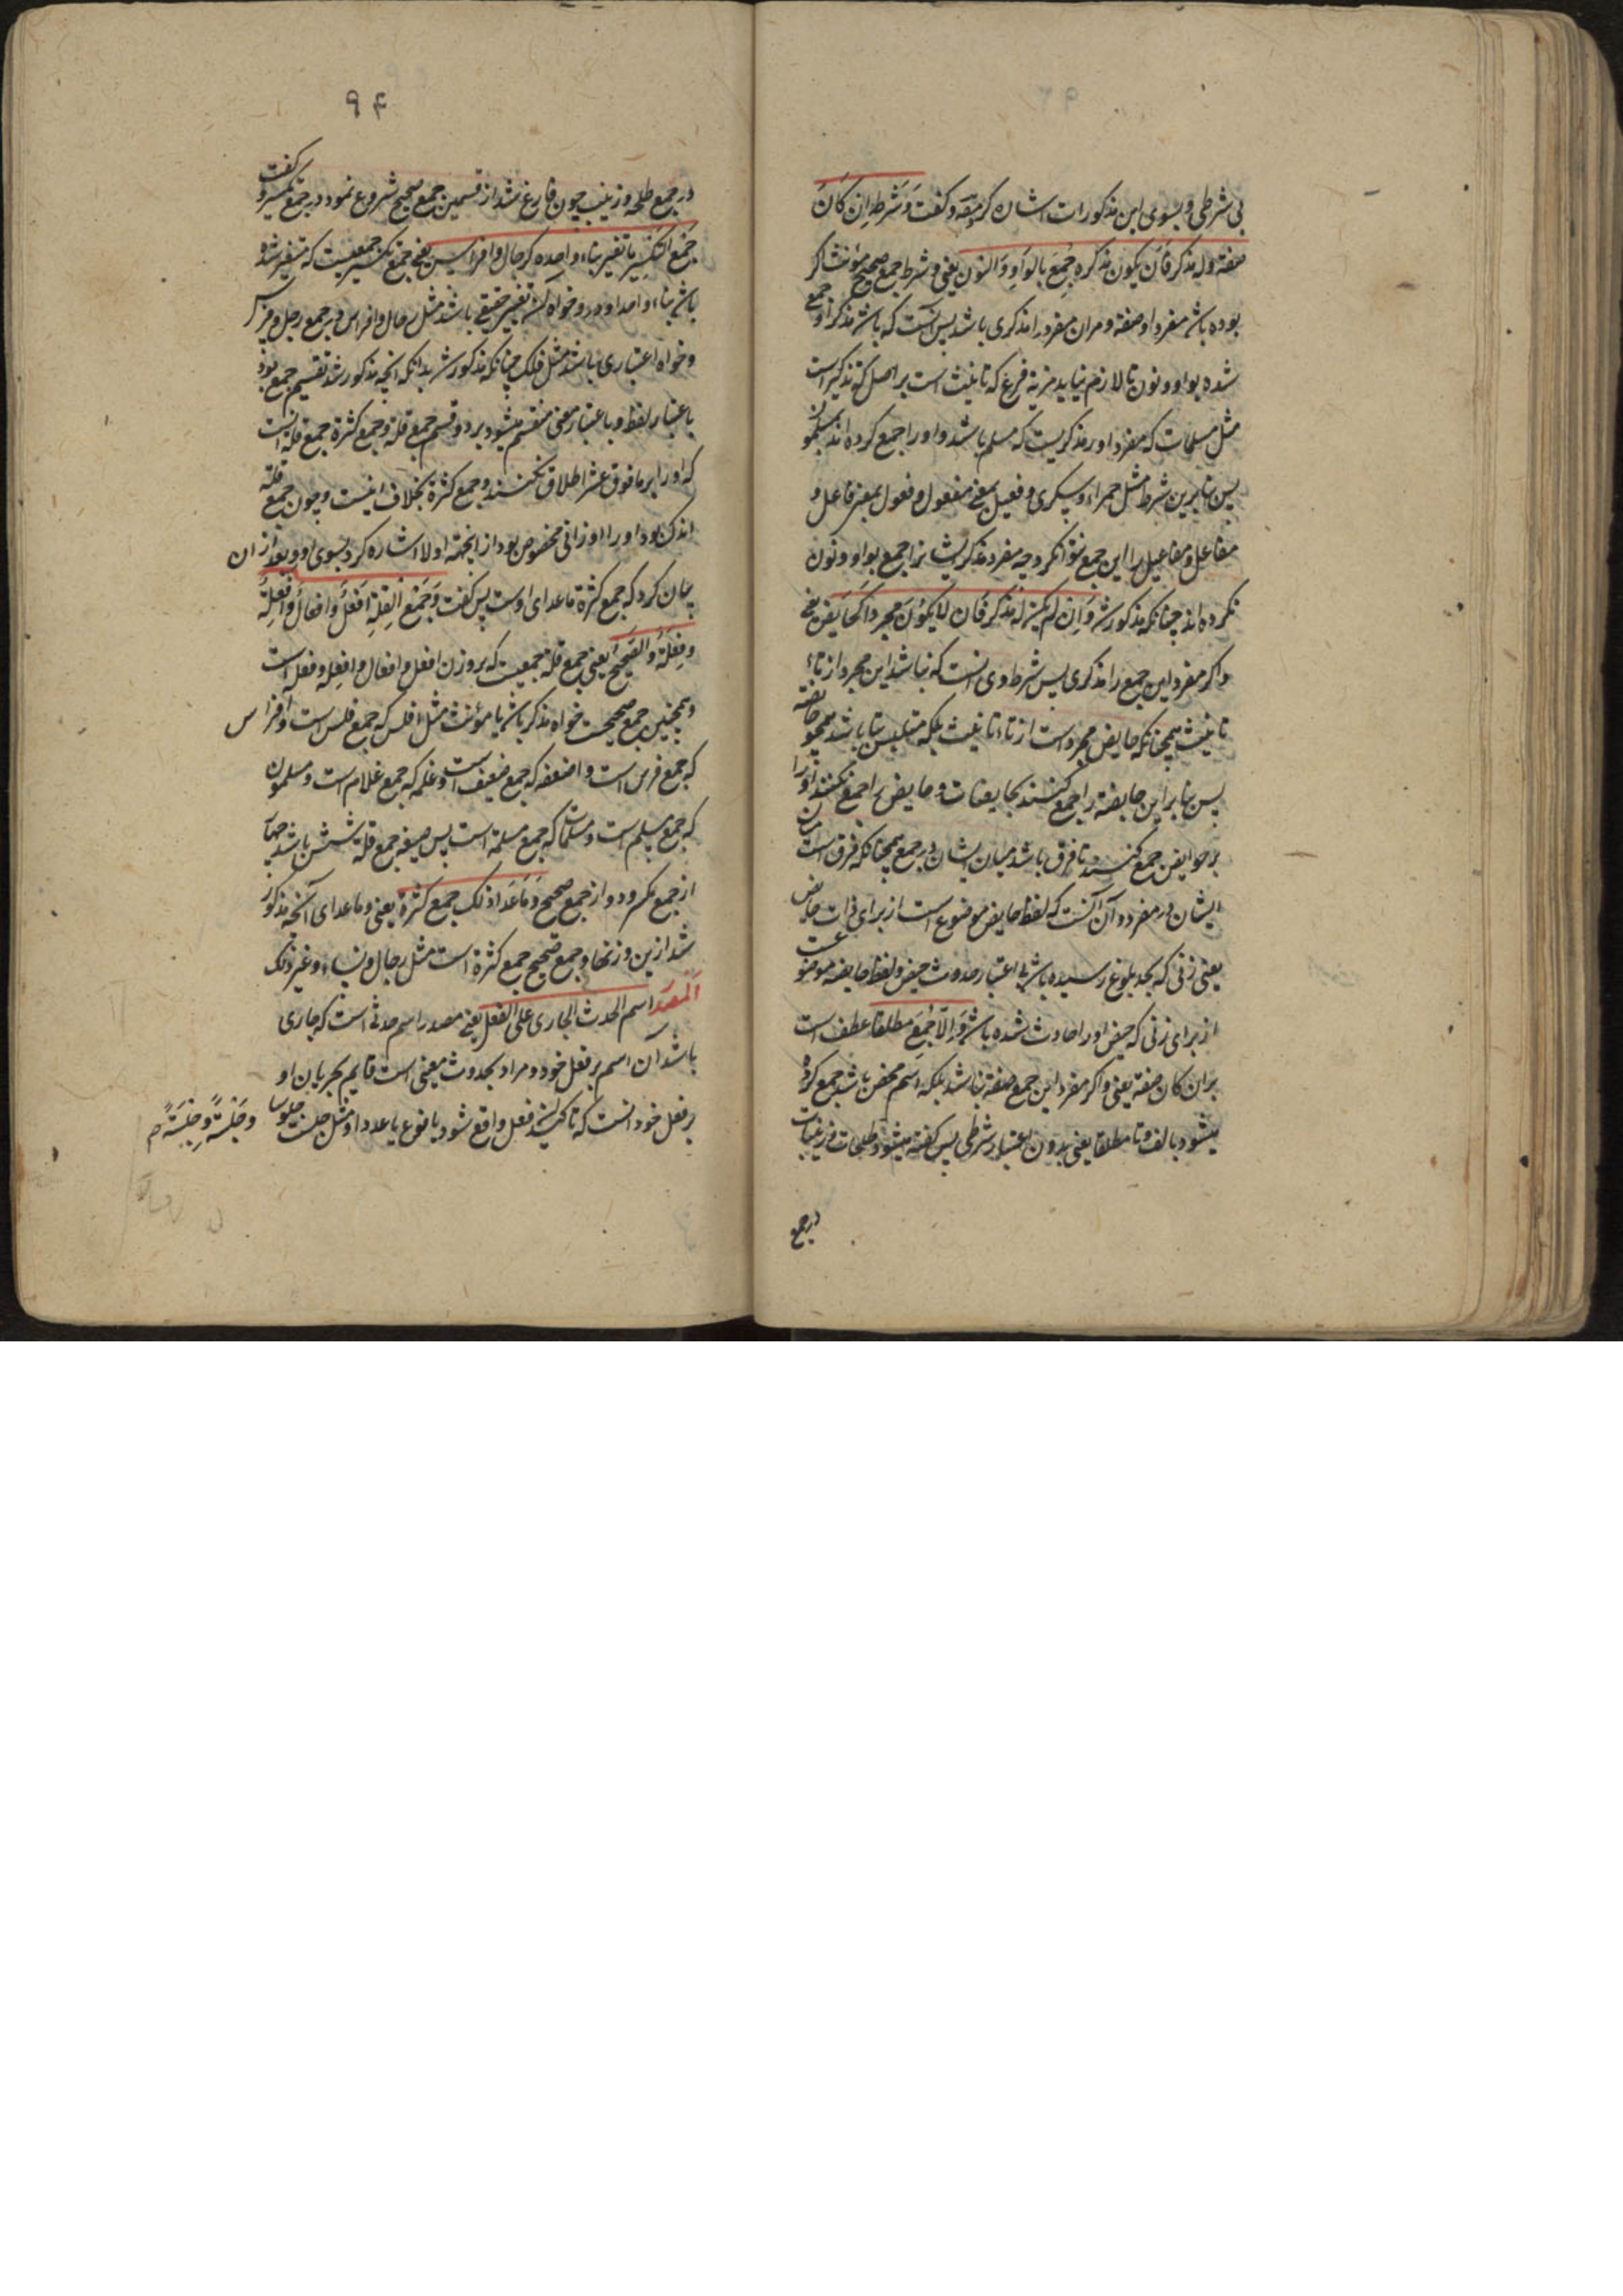 بی شرطی و بسوی این مذکورات اشاره کرد مص و گفت وَشَرطه اِن کَانَ
صفة وله مذکر فَاَن یکون مذکره جُمِعَ بالوَاوِ وَالنون یعنی و شرط جمع صحیح مؤنث اگر
بوده باشد مفرد او صفة و مران مفرد را مذکری باشد پس آنست که باشد مذکر او جمع
شده بواو و نون تا لازم نیاید مزیة فرع که تانیث است بر اصل که تذکیر است
مثل مسلمات که مفرد او را مذکریست که مسلم باشد و او را جمع کرده اند بمسلمون
پس بنابرین شرط مثل حمراء و سکری و فعیل بمعنی مفعول و فعول بمعنی فاعل و
مفاعل و مفاعیل را این جمع نتوان کرد چه مفرد مذکر ایشانرا جمع بواو و نون
نکرده اند چنانکه مذکور شد وَاِن لم یکن له مذکر فَاَن لا یکوُنَ مجردا کحَایض یعنی
و اگر مفرد این جمع را مذکری پس شرط وی آنست که نباشد این مجرد از تاء
تانیث همچنانکه حایض مجرد است از تاء تانیث بلکه متلبس بتا باشد همچو حایضه
پس بنابر این حایضه را جمع کنند بحایضات و حایض را جمع نکنند او را
بر حوایض جمع کنند تا فرق باشد میان ایشان در جمع همچنانکه فرق است میان
ایشان در مفرد و آن آنست که لفظ حایض موضوع است از برای ذات حایض
یعنی زنی که بحد بلوغ رسیده باشد بی اعتبار حدوث حیض و لفظ حایضه موضوعست
از برای زنی که حیض او را حادث شده باشد وَاِلّا جُمِعَ مطلقا عطف است
بران کان صفة یعنی و اگر مفرد این جمع صفة نباشد بلکه اسم محض باشد جمع کرده
میشود بالف و تا مطلقا یعنی بدون اعتبار شرطی پس گفته میشود طلحات و زینبات
در جمع
۹۴
در جمع طلحه و زینب چون فارغ شد از قسمین جمع صحیح شروع نمود در جمع تکسیر و گفت
جَمع التَکسِیر ما تغیر بناء واحده کرجال و افراس یعنی جمع تکسیر جمعیست که متغیر شده
باشد بناء واحد او در و خواه این تغییر حقیقی باشد مثل رجال و افراس در جمع رجل و فرس
و خواه اعتباری باشد مثل فلک چنانکه مذکور شد بدانکه آنچه مذکور شد تقسیم جمع بود
باعتبار لفظ و باعتبار معنی منقسم میشود بر دو قسم جمع قلة و جمع کثرة جمع قلة آنست
که او را بر مافوق عشر اطلاق نکنند و جمع کثرة بخلاف اینست و چون جمع قلة
اندک بود او را اوزانی مخصوص بود از اینجهة اولا اشاره کرد بسوی او و بعد از ان
بیان کرد که جمع کثرة ماعدای اوست پس گفت وَجَمع القِلةِ اَفعُل وافعال وافعِلة
وفِعلَة وَالصَحیح یعنی جمع قلة جمعیست که بروزن افعل و افعال و افعِله و فعله است
و همچنین جمع صحیحست خواه مذکر باشد یا مؤنث مثل افلس که جمع فلس است و افراس
که جمع فرس است و اضعفه که جمع ضعیف است و غلمه که جمع غلام است و مسلمون
که جمع مسلم است و مسلمات که جمع مسلمة است پس صیغه جمع قلة شش باشد چهار
از جمع مکسر و دو از جمع صحیح وَمَاعَدَا ذلک جمع کثرة یعنی و ماعدای آنچه مذکور
شد ازین وزنها و جمع صحیح جمع کثرة است مثل رجال و نساء و غیر ذلک
اَلمصدَر اسم الحدث الجاری علی الفعل یعنی مصدر اسم حدثی است که جاری
باشد آن اسم بر فعل خود و مراد بحدوث معنی است قایم بجریان او
بر فعل خود آنست که تاکید فعل واقع شود یا نوع یا عدد او مثل جلست جلوسا وجَلسَةً وجِلسَةً م